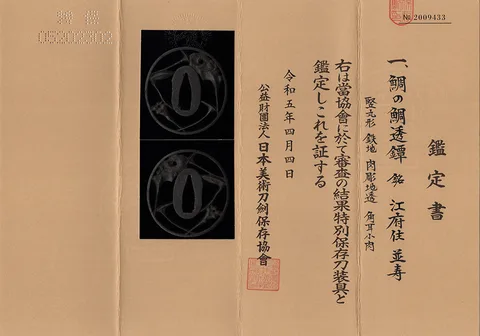 № 2009433
鑑定書
一、鯛の鯛透鐔 銘 江府住 並寿
竪丸形 鉄地 肉彫地透 角耳小肉
右は當協會に於て審査の結果特別保存刀装具と
鑑定しこれを証する
令和五年四月四日
公益財團法人 日本美術刀劍保存協會